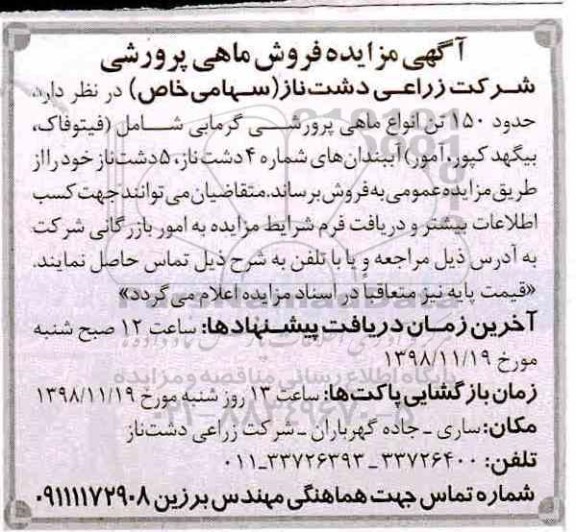 آگهی مزایده فروش ماهی پرورشی
شرکت زراعی دشت‌ناز (سهامی خاص) در نظر دارد
حدود ۱۵۰ تن انواع ماهی پرورشی گرمابی شامل (فیتوفاک،
بیگهد کپور، آمور) آببندان‌های شماره ۴ دشت ناز، ۵ دشت ناز خود را از
طریق مزایده عمومی به فروش برساند. متقاضیان می توانند جهت کسب
اطلاعات بیشتر و دریافت فرم شرایط مزایده به امور بازرگانی شرکت
به آدرس ذیل مراجعه و یا با تلفن به شرح ذیل تماس حاصل نمایند.
«قیمت پایه نیز متعاقباً در اسناد مزایده اعلام می گردد»
آخرین زمان دریافت پیشنهادها: ساعت ۱۲ صبح شنبه
مورخ ۱۳۹۸/۱۱/۱۹
زمان بازگشایی پاکت‌ها: ساعت ۱۳ روز شنبه مورخ ۱۳۹۸/۱۱/۱۹
مکان: ساری ـ جاده گهرباران ـ شرکت زراعی دشت‌ناز
تلفن: ۳۳۷۲۶۴۰۰ ـ ۳۳۷۲۶۳۹۳-۰۱۱
شماره تماس جهت هماهنگی مهندس برزین ۰۹۱۱۱۱۷۲۹۰۸
پایگاه اطلاع رسانی مناقصه و مزایده
۰۲۱-۸۸۳۴۹۶۷۰-۵